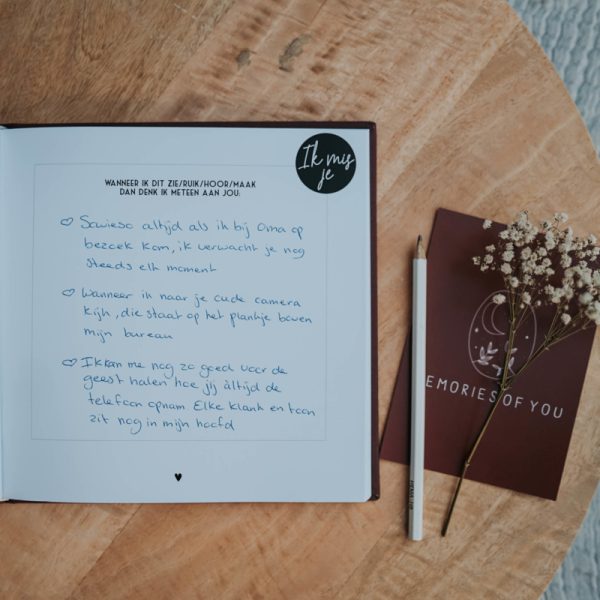 Ik mis
je
WANNEER IK DIT ZIE/RUIK/HOOR/MAAK
DAN DENK IK METEEN AAN JOU:
Sowieso altijd als ik bij Oma op
bezoek kom, ik verwacht je nog
steeds elk moment
Wanneer ik naar je oude camera
kijk, die staat op het plankje boven
mijn bureau
Ik kan me nog zo goed voor de
geest halen hoe jij àltijd de
telefoon opnam Elke klank en toon
zit nog in mijn hoofd
EMORIES OF YOU